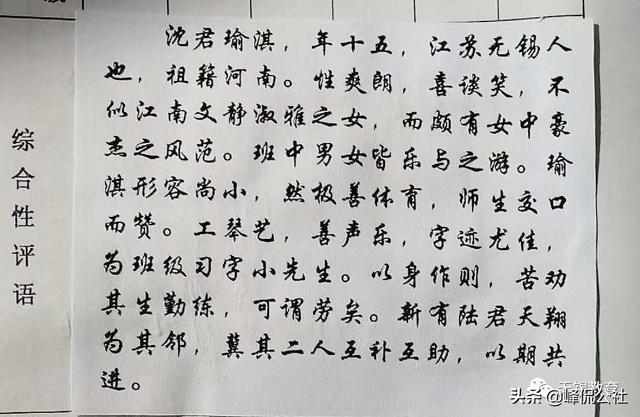 综合性评语
沈君瑜淇，年十五，江苏无锡人
也，祖籍河南。性爽朗，喜谈笑，不
似江南文静淑雅之女，而颇有女中豪
杰之风范。班中男女皆乐与之游。瑜
淇形容尚小，然极善体育，师生交口
而赞。工琴艺，善声乐，字迹尤佳，
为班级习字小先生。以身作则，苦劝
其生勤练，可谓劳矣。新有陆君天翔
为其邻，冀其二人互补互助，以期共
进。
无锡教育
头条 @峰侃公社